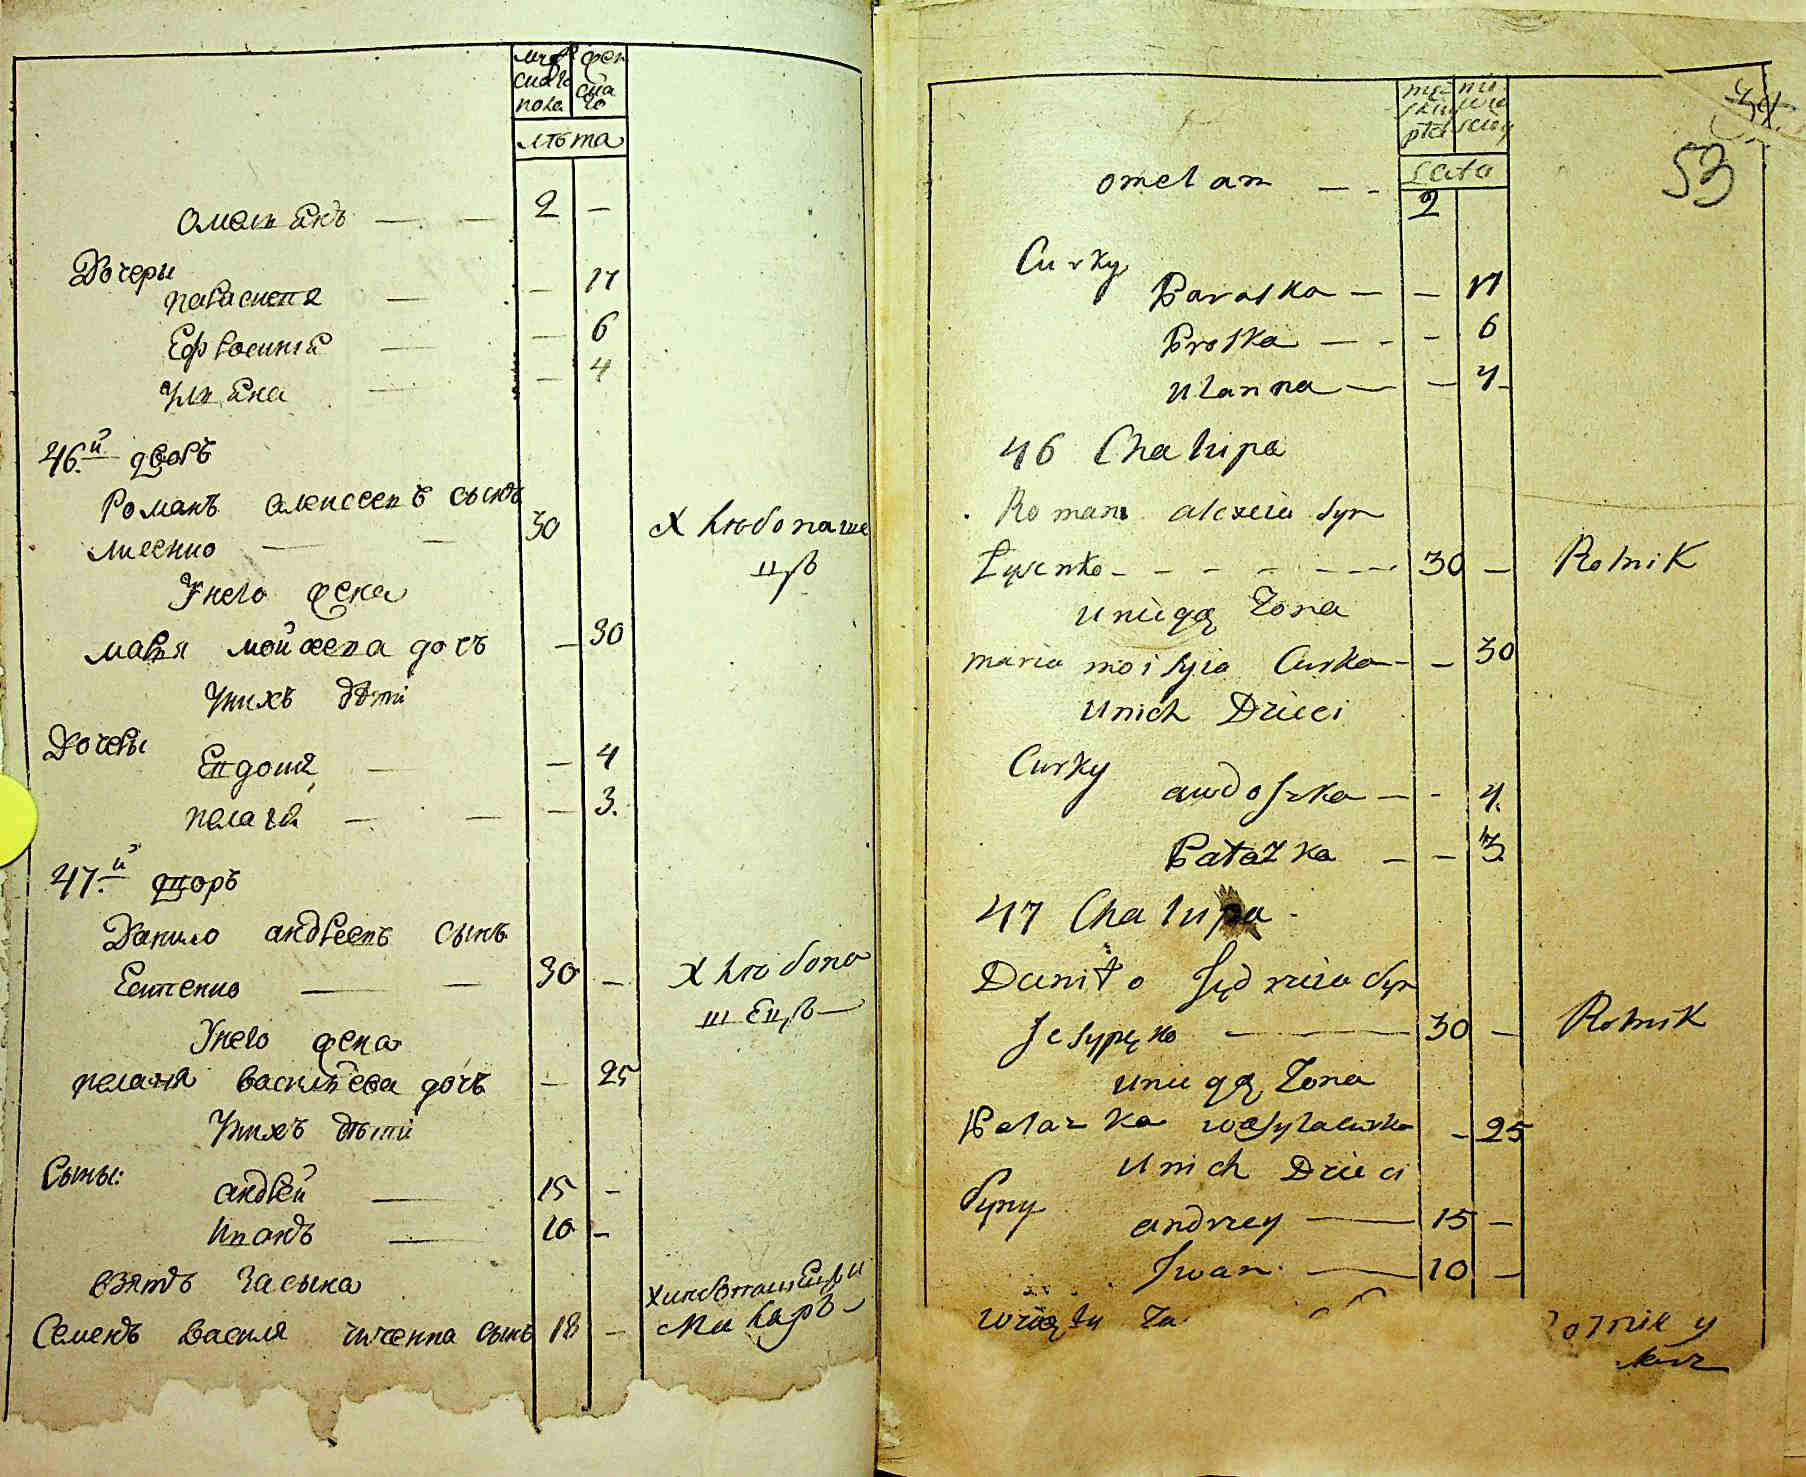 мужескаго пола
женскаго
лѣта
Омелянъ — — 2 —
Дочеры
Параскевія — — 17
Ефросинія — — 6
Уляна — — 4
46.й дворъ
Романъ Алексеевъ сынъ
Лисенко — — 30
Хлюбопаше
цъ
У него жена
Марья Мойсеева дочъ — 30
У нихъ дѣти
Дочеры
Евдокія — — 4
Пелагія — — — 3.
47.й дворъ
Данило Андреевъ сынъ
Есипенко — — 30 —
Хлюбопа
шецъ —
У него жена
Пелагія Васильева дочъ — 25
У нихъ дѣти
Сыны:
Андрей — 15 —
Иванъ — 10 —
Взятъ за сына
Семенъ Василя сынъ 18 —
53
męzkiey płci
Lata
Omelan — - 2
Curky
Paraska — — 17
Proska — - — 6
Ulanna — — 4
46 Chalupa
Roman Alexeia Syn
Łysenko - - - - - — 30 —
Rolnik
U niego Zona
Maria Moisyia Curka - — 30
U nich Dzieci
Curky
Awdoszka — - 4.
Pałazka — — 3
47 Chalupa
Daniło Jędrzeia Syn
Jesypęko — 30 —
Rolnik
U niego Zona
Palazka Wasyla curka — 25
U nich Dzieci
Syny
Andrzey — 15 —
Iwan — 10 —
Wzięty Za